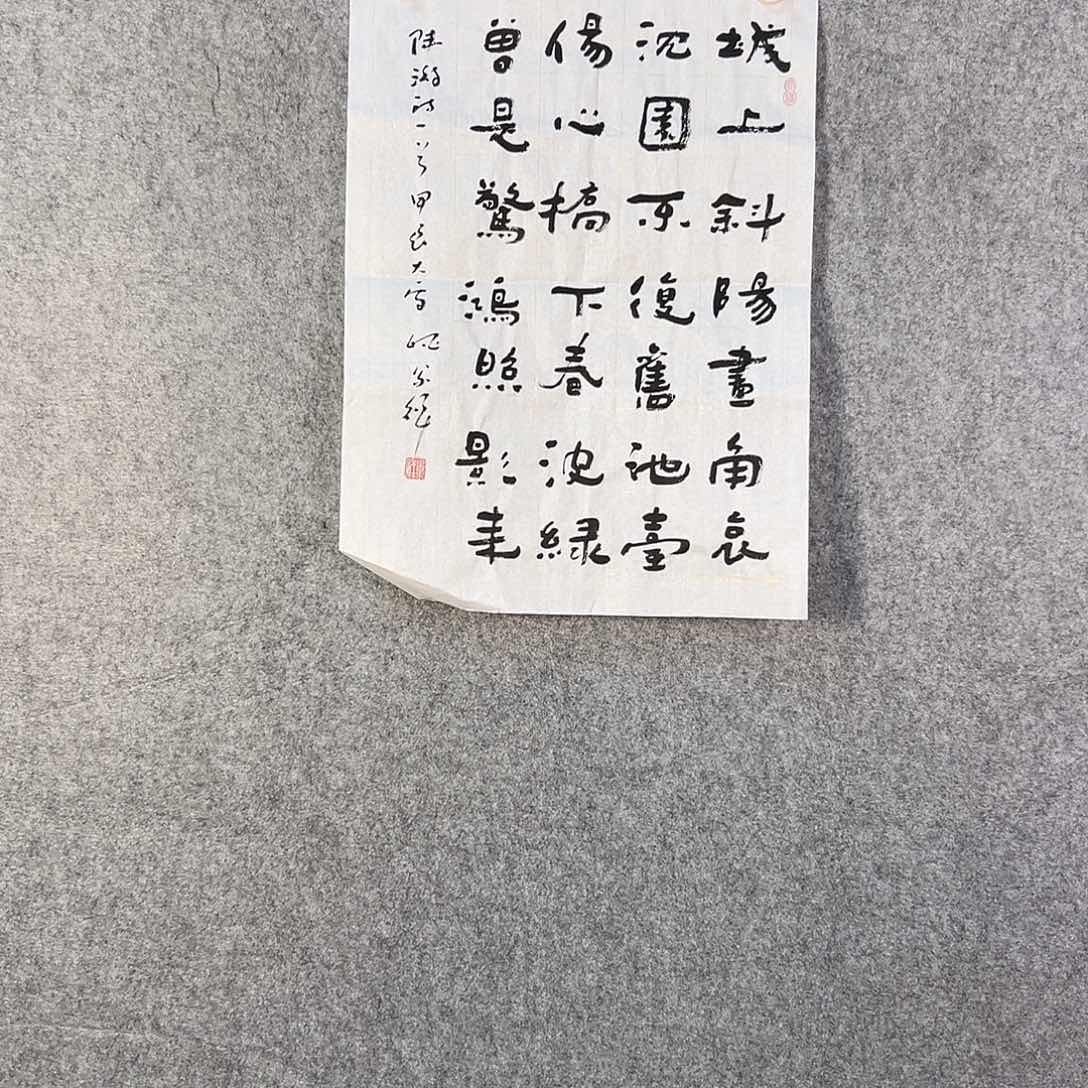 城上斜陽畫角哀
沈園不復舊池臺
傷心橋下春波緑
曾是驚鴻照影来
陸游詩一首甲辰大雪